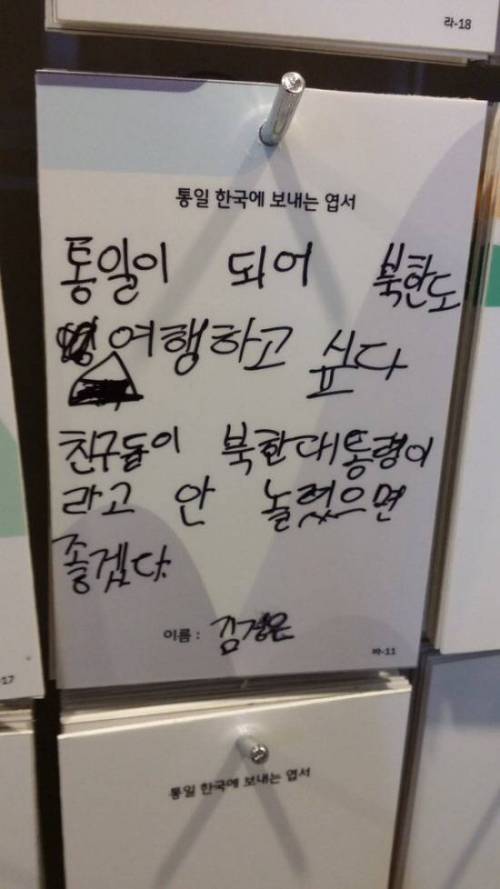 라-18
통일 한국에 보내는 엽서
통일이 되어 북한도
여행하고 싶다
친구들이 북한대통령이
라고 안 놀렸으면
좋겠다.
이름 : 김정은
-17
통일 한국에 보내는 엽서